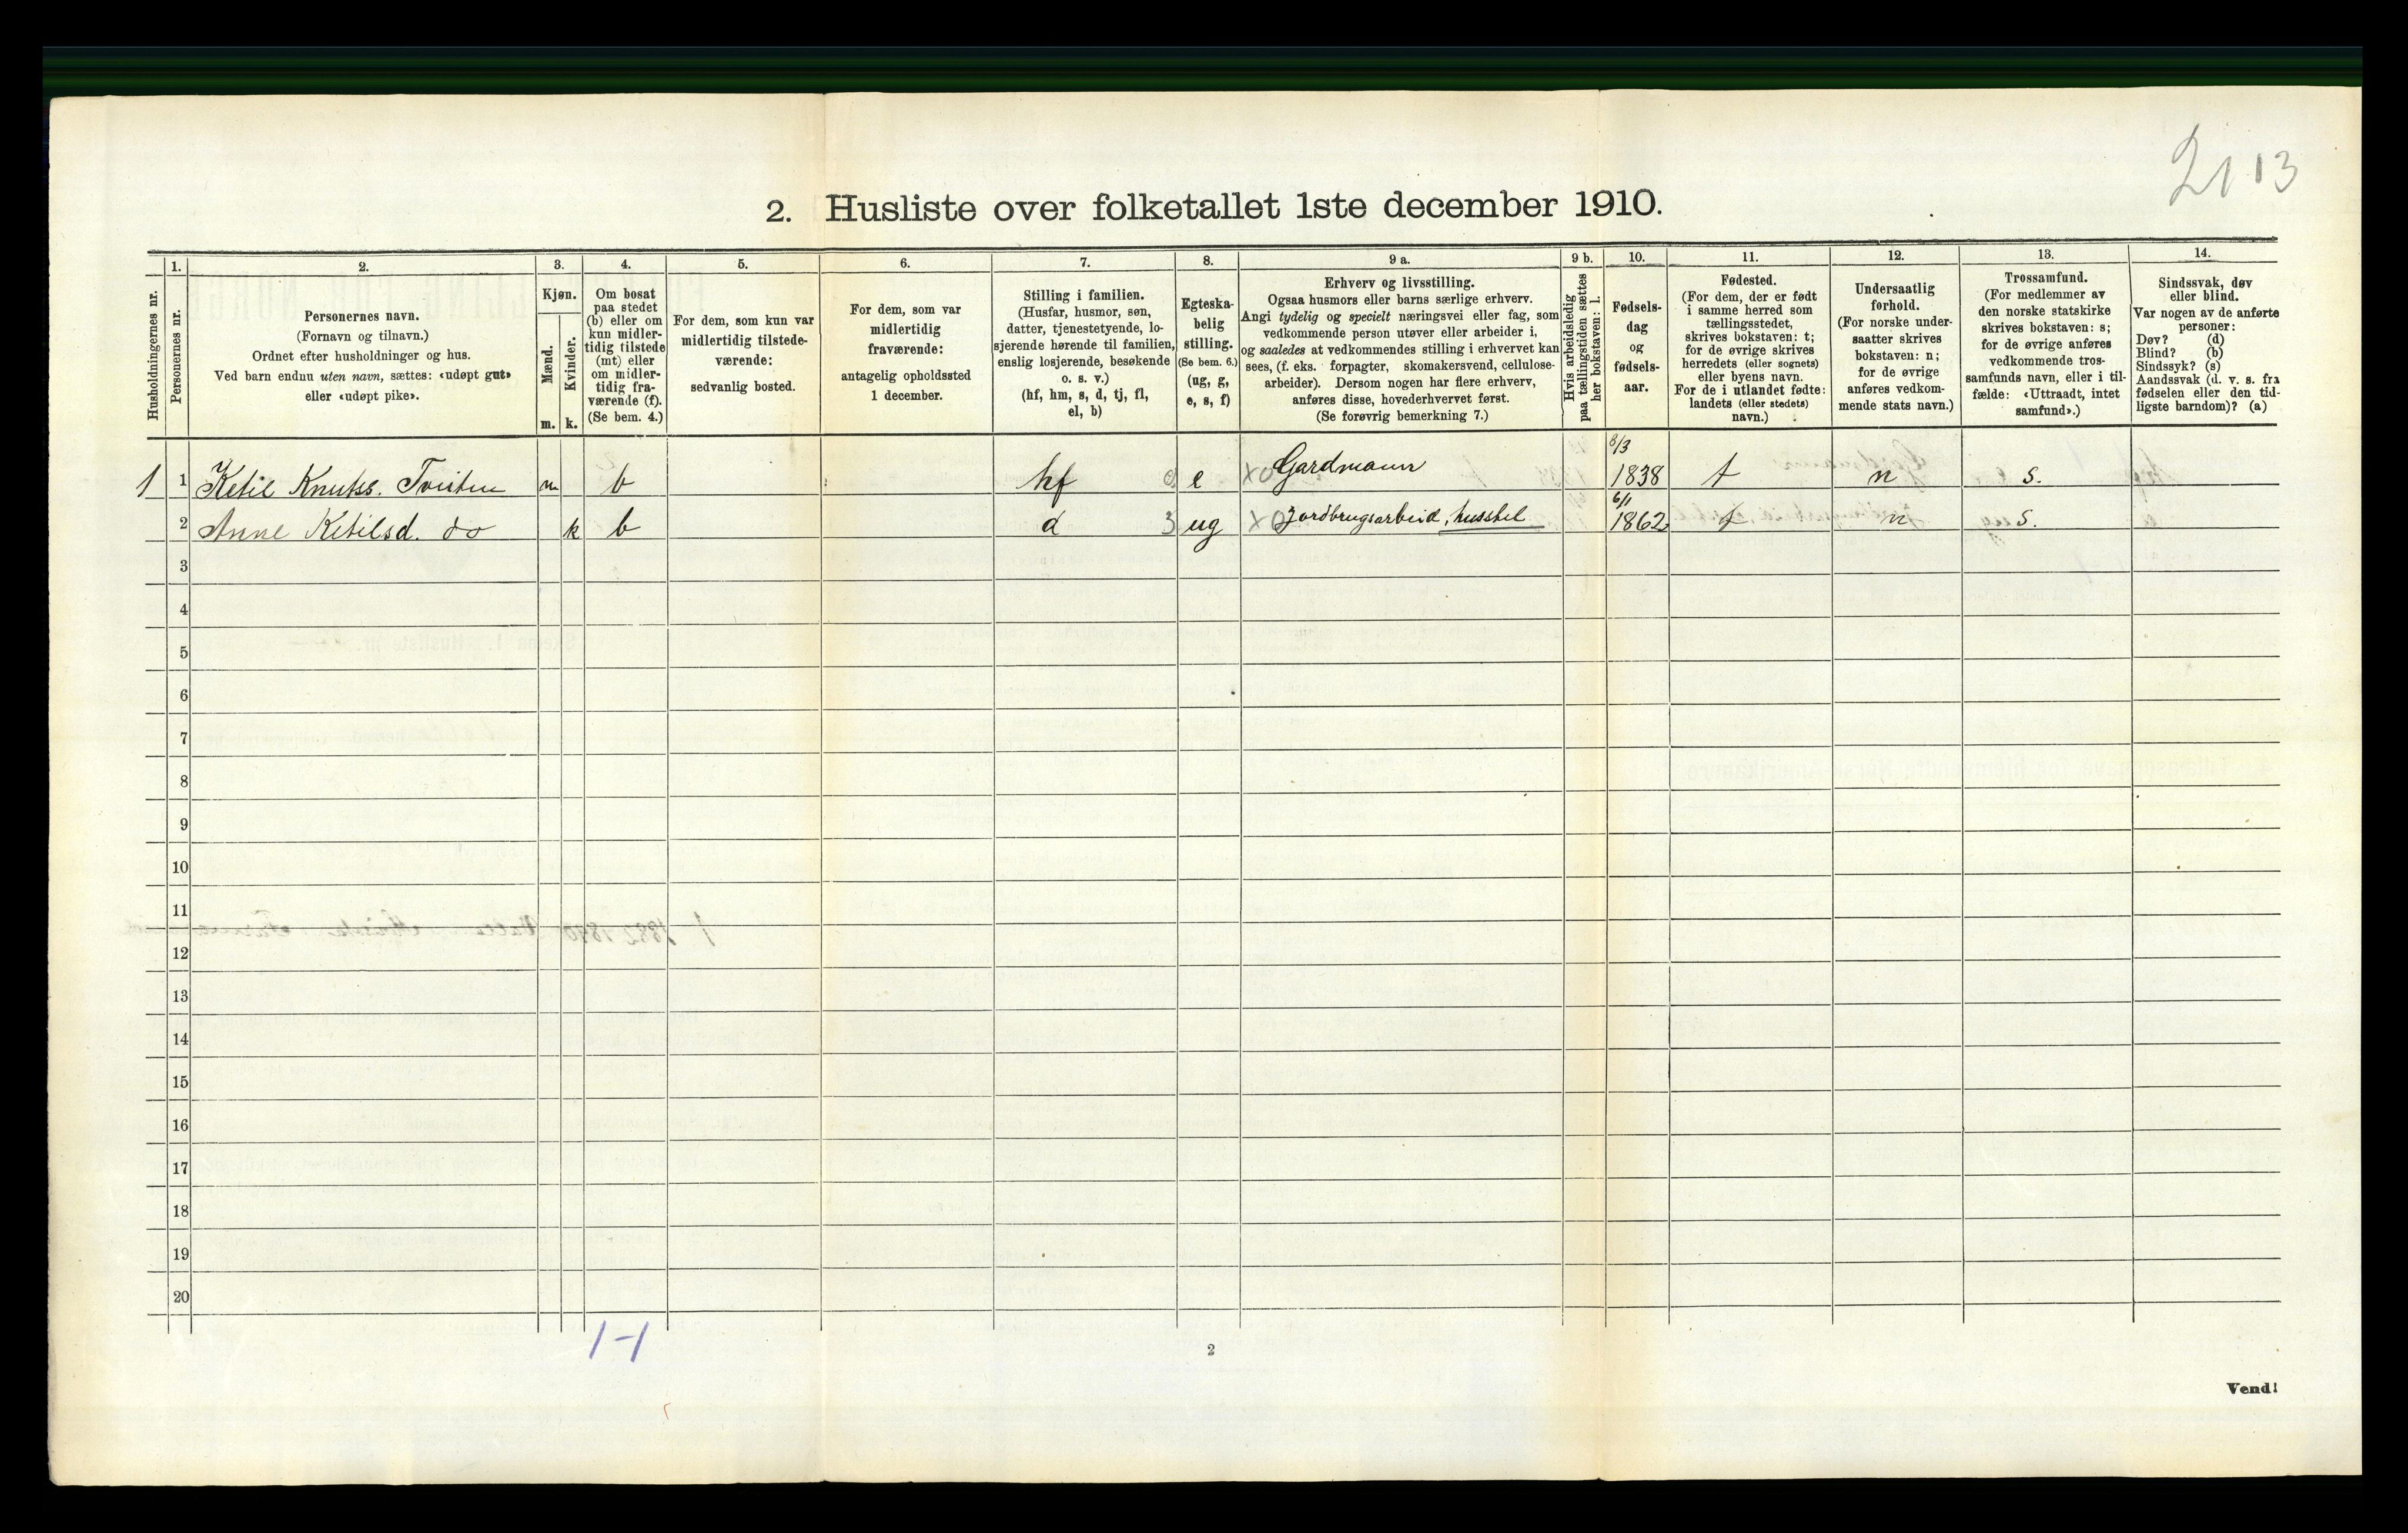 2113
2. Husliste over folketallet 1ste december 1910.
Husholdningernes nr.
1.
Personernes nr.
2.
Personernes navn.
(Fornavn og tilnavn.)
Ordnet efter husholdninger og hus.
Ved barn endnu uten navn, sættes: «udøpt gut»
eller «udøpt pike».
3.
Kjøn.
Mænd.
Kvinder.
m. k.
4.
Om bosat
paa stedet
(b) eller om
kun midler-
tidig tilstede
(mt) eller
om midler-
tidig fra-
værende (f).
(Se bem. 4.)
5.
For dem, som kun var
midlertidig tilstede-
værende:
sedvanlig bosted.
6.
For dem, som var
midlertidig
fraværende:
antagelig opholdssted
1 december.
7.
Stilling i familien.
(Husfar, husmor, søn,
datter, tjenestetyende, lo-
sjerende hørende til familien,
enslig losjerende, besøkende
o. s. v.)
(hf, hm, s, d, tj, fl,
el, b)
8.
Egteska-
belig
stilling.
(Se bem. 6.)
(ug, g,
e, s, f)
9 a.
Erhverv og livsstilling.
Ogsaa husmors eller barns særlige erhverv.
Angi tydelig og specielt næringsvei eller fag, som
vedkommende person utøver eller arbeider i,
og saaledes at vedkommendes stilling i erhvervet kan
sees, (f. eks. forpagter, skomakersvend, cellulose-
arbeider). Dersom nogen har flere erhverv,
anføres disse, hovederhvervet først.
(Se forøvrig bemerkning 7.)
9 b.
Hvis arbeidsledig
paa tællingstiden sættes
her bokstaven: l.
10.
Fødsels-
dag
og
fødsels-
aar.
11.
Fødested.
(For dem, der er født
i samme herred som
tællingsstedet,
skrives bokstaven: t;
for de øvrige skrives
herredets (eller sognets)
eller byens navn.
For de i utlandet fødte:
landets (eller stedets)
navn.)
12.
Undersaatlig
forhold.
(For norske under-
saatter skrives
bokstaven: n;
for de øvrige
anføres vedkom-
mende stats navn.)
13.
Trossamfund.
(For medlemmer av
den norske statskirke
skrives bokstaven: s;
for de øvrige anføres
vedkommende tros-
samfunds navn, eller i til-
fælde: «Uttraadt, intet
samfund».)
14.
Sindssvak, døv
eller blind.
Var nogen av de anførte
personer:
Døv? (d)
Blind? (b)
Sindssyk? (s)
Aandssvak (d. v. s. fra
fødselen eller den tid-
ligste barndom)? (a)
1 1 Ketil Knutss. Tveiten m b hf e XO Gardmann 8/3 1838 t n s.
2 Anne Ketilsd. do k b d 3 ug XO Jordbrugsarbeid, husstel 6/1 1862 t n s.
3
4
5
6
7
8
9
10
11
12
13
14
15
16
17
18
19
20
1-1
2
Vend!